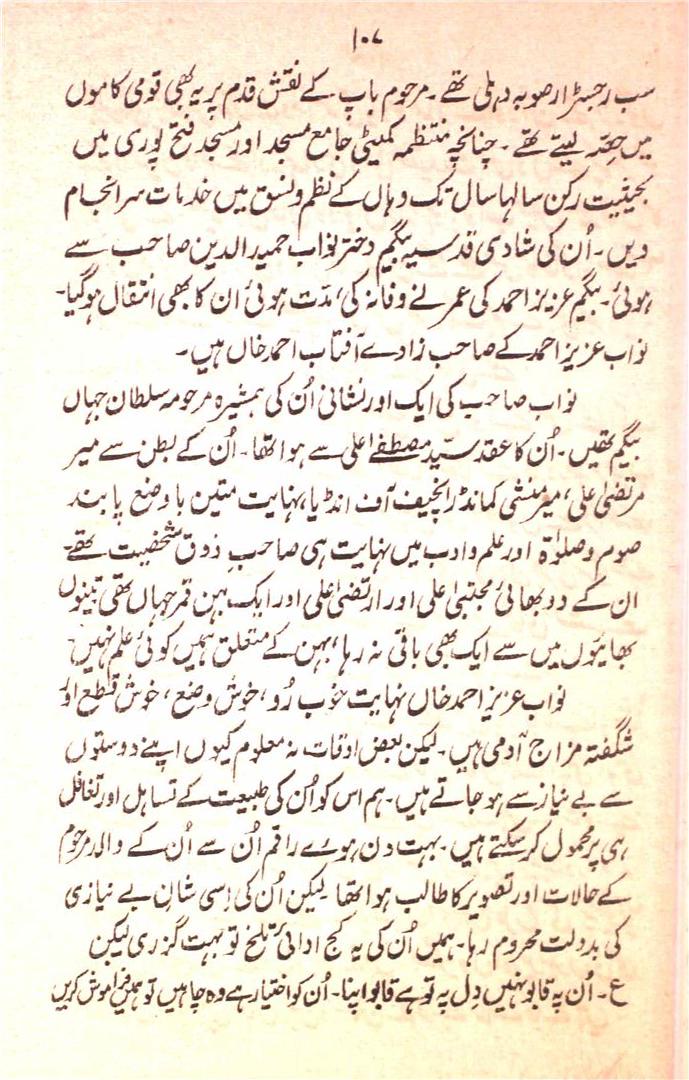 ۱۰۷
سب رجسٹرار صوبہ دہلی تھے۔ مرحوم باپ کے نقش قدم پر یہ بھی قومی کاموں
میں حصّہ لیتے تھے۔ چنانچہ منتظمہ کمیٹی جامع مسجد اور مسجد فتح پوری میں
بحیثیت رکن سالہا سال تک وہاں کے نظم و نسق میں خدمات سرانجام
دیں۔ اُن کی شادی قدسیہ بیگم دختر نواب حمید الدین صاحب سے
ہوئی۔ بیگم عزیز احمد کی عمر نے وفا نہ کی، مدّت ہوئی ان کا بھی انتقال ہوگیا۔
نواب عزیز احمد کے صاحب زادے آفتاب احمد خاں ہیں۔
نواب صاحب کی ایک اور نشانی اُن کی ہمشیرہ مرحومہ سلطان جہاں
بیگم تھیں۔ اُن کا عقد سیّد مصطفےٰ علی سے ہوا تھا۔ اُن کے بطن سے میر
مرتضیٰ علی، میر منشی کمانڈر انچیف آف انڈیا، نہایت متین با وضع پابند
صوم و صلوٰۃ اور علم و ادب میں نہایت ہی صاحبِ ذوق شخصیت تھے۔
ان کے دو بھائی مجتبیٰ علی اور ارتضیٰ علی اور ایک بہن قمر جہاں تھی تینوں
بھائیوں میں سے ایک بھی باقی نہ رہا، بہن کے متعلق ہمیں کوئی علم نہیں۔
نواب عزیز احمد خاں نہایت خوب رُو، خوش وضع، خوش قطع اور
شگفتہ مزاج آدمی ہیں۔ لیکن بعض اوقات نہ معلوم کیوں اپنے دوستوں
سے بے نیاز سے ہو جاتے ہیں۔ ہم اس کو اُن کی طبیعت کے تساہل اور تغافل
ہی پر محمول کر سکتے ہیں۔ بہت دن ہوے راقم اُن سے اُن کے والد مرحوم
کے حالات اور تصویر کا طالب ہوا تھا لیکن اُن کی اِسی شانِ بے نیازی
کی بدولت محروم رہا۔ ہمیں اُن کی یہ کج ادائی تلخ تو بہت گزری لیکن
ع۔ اُن پہ قابو نہیں دِل پہ تو ہے قابو اپنا۔ اُن کو اختیار ہے وہ چاہیں تو ہمیں فراموش کریں